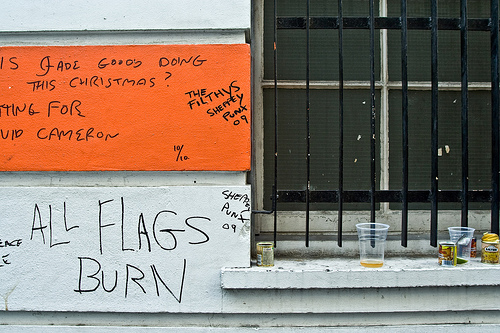 IS JADE GOODY DOING
THIS CHRISTMAS?
TING FOR
VID CAMERON
THE
FILTHY'S
SHEPPEY
PUNX
09
10/10
ALL FLAGS
BURN
SHEPPEY
PUNX
09
EACE